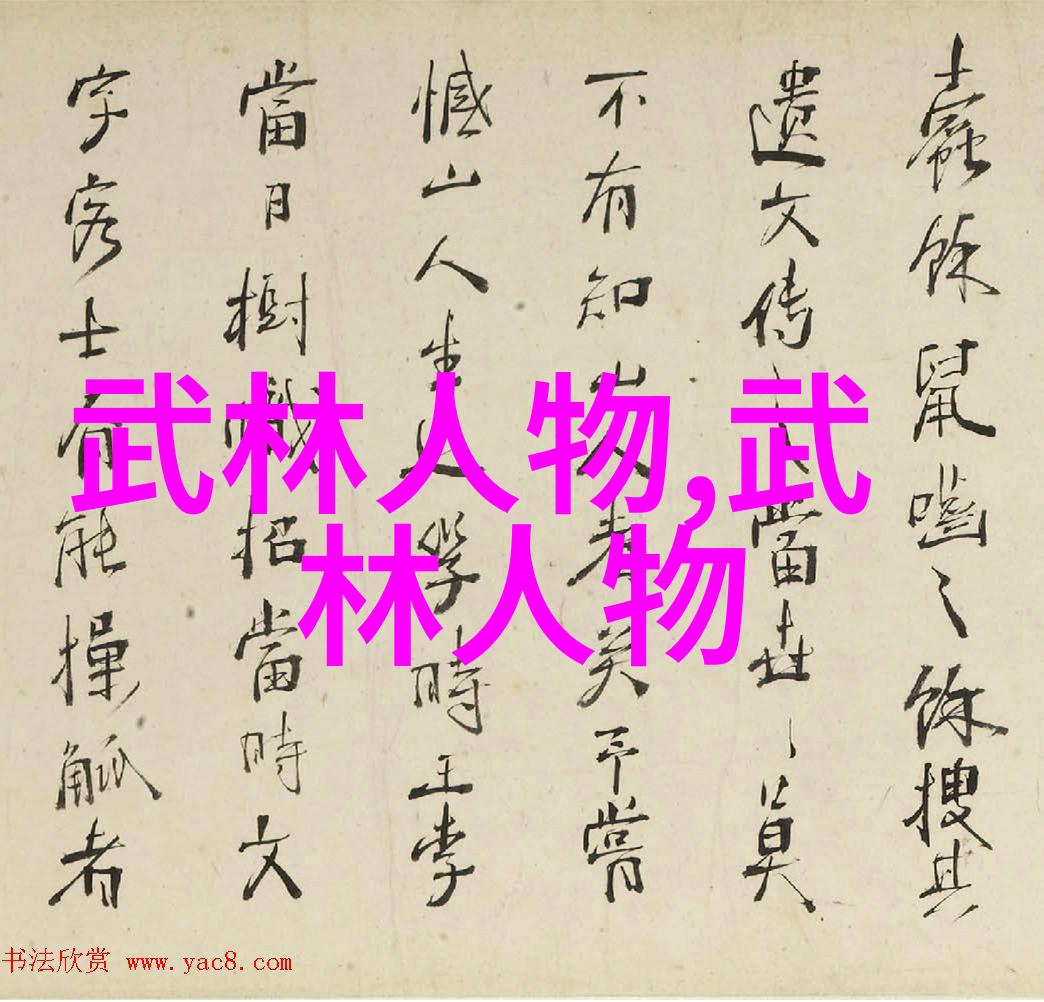 蠹餘鼠嚙之餘搜其
遺文传當世〻莫
不有知山人者矣予嘗
憾山人生學時王李
當日樹幟招當時文
字客士有能操觚者
武林人物,武
林人物
书法欣赏 www.yac8.com